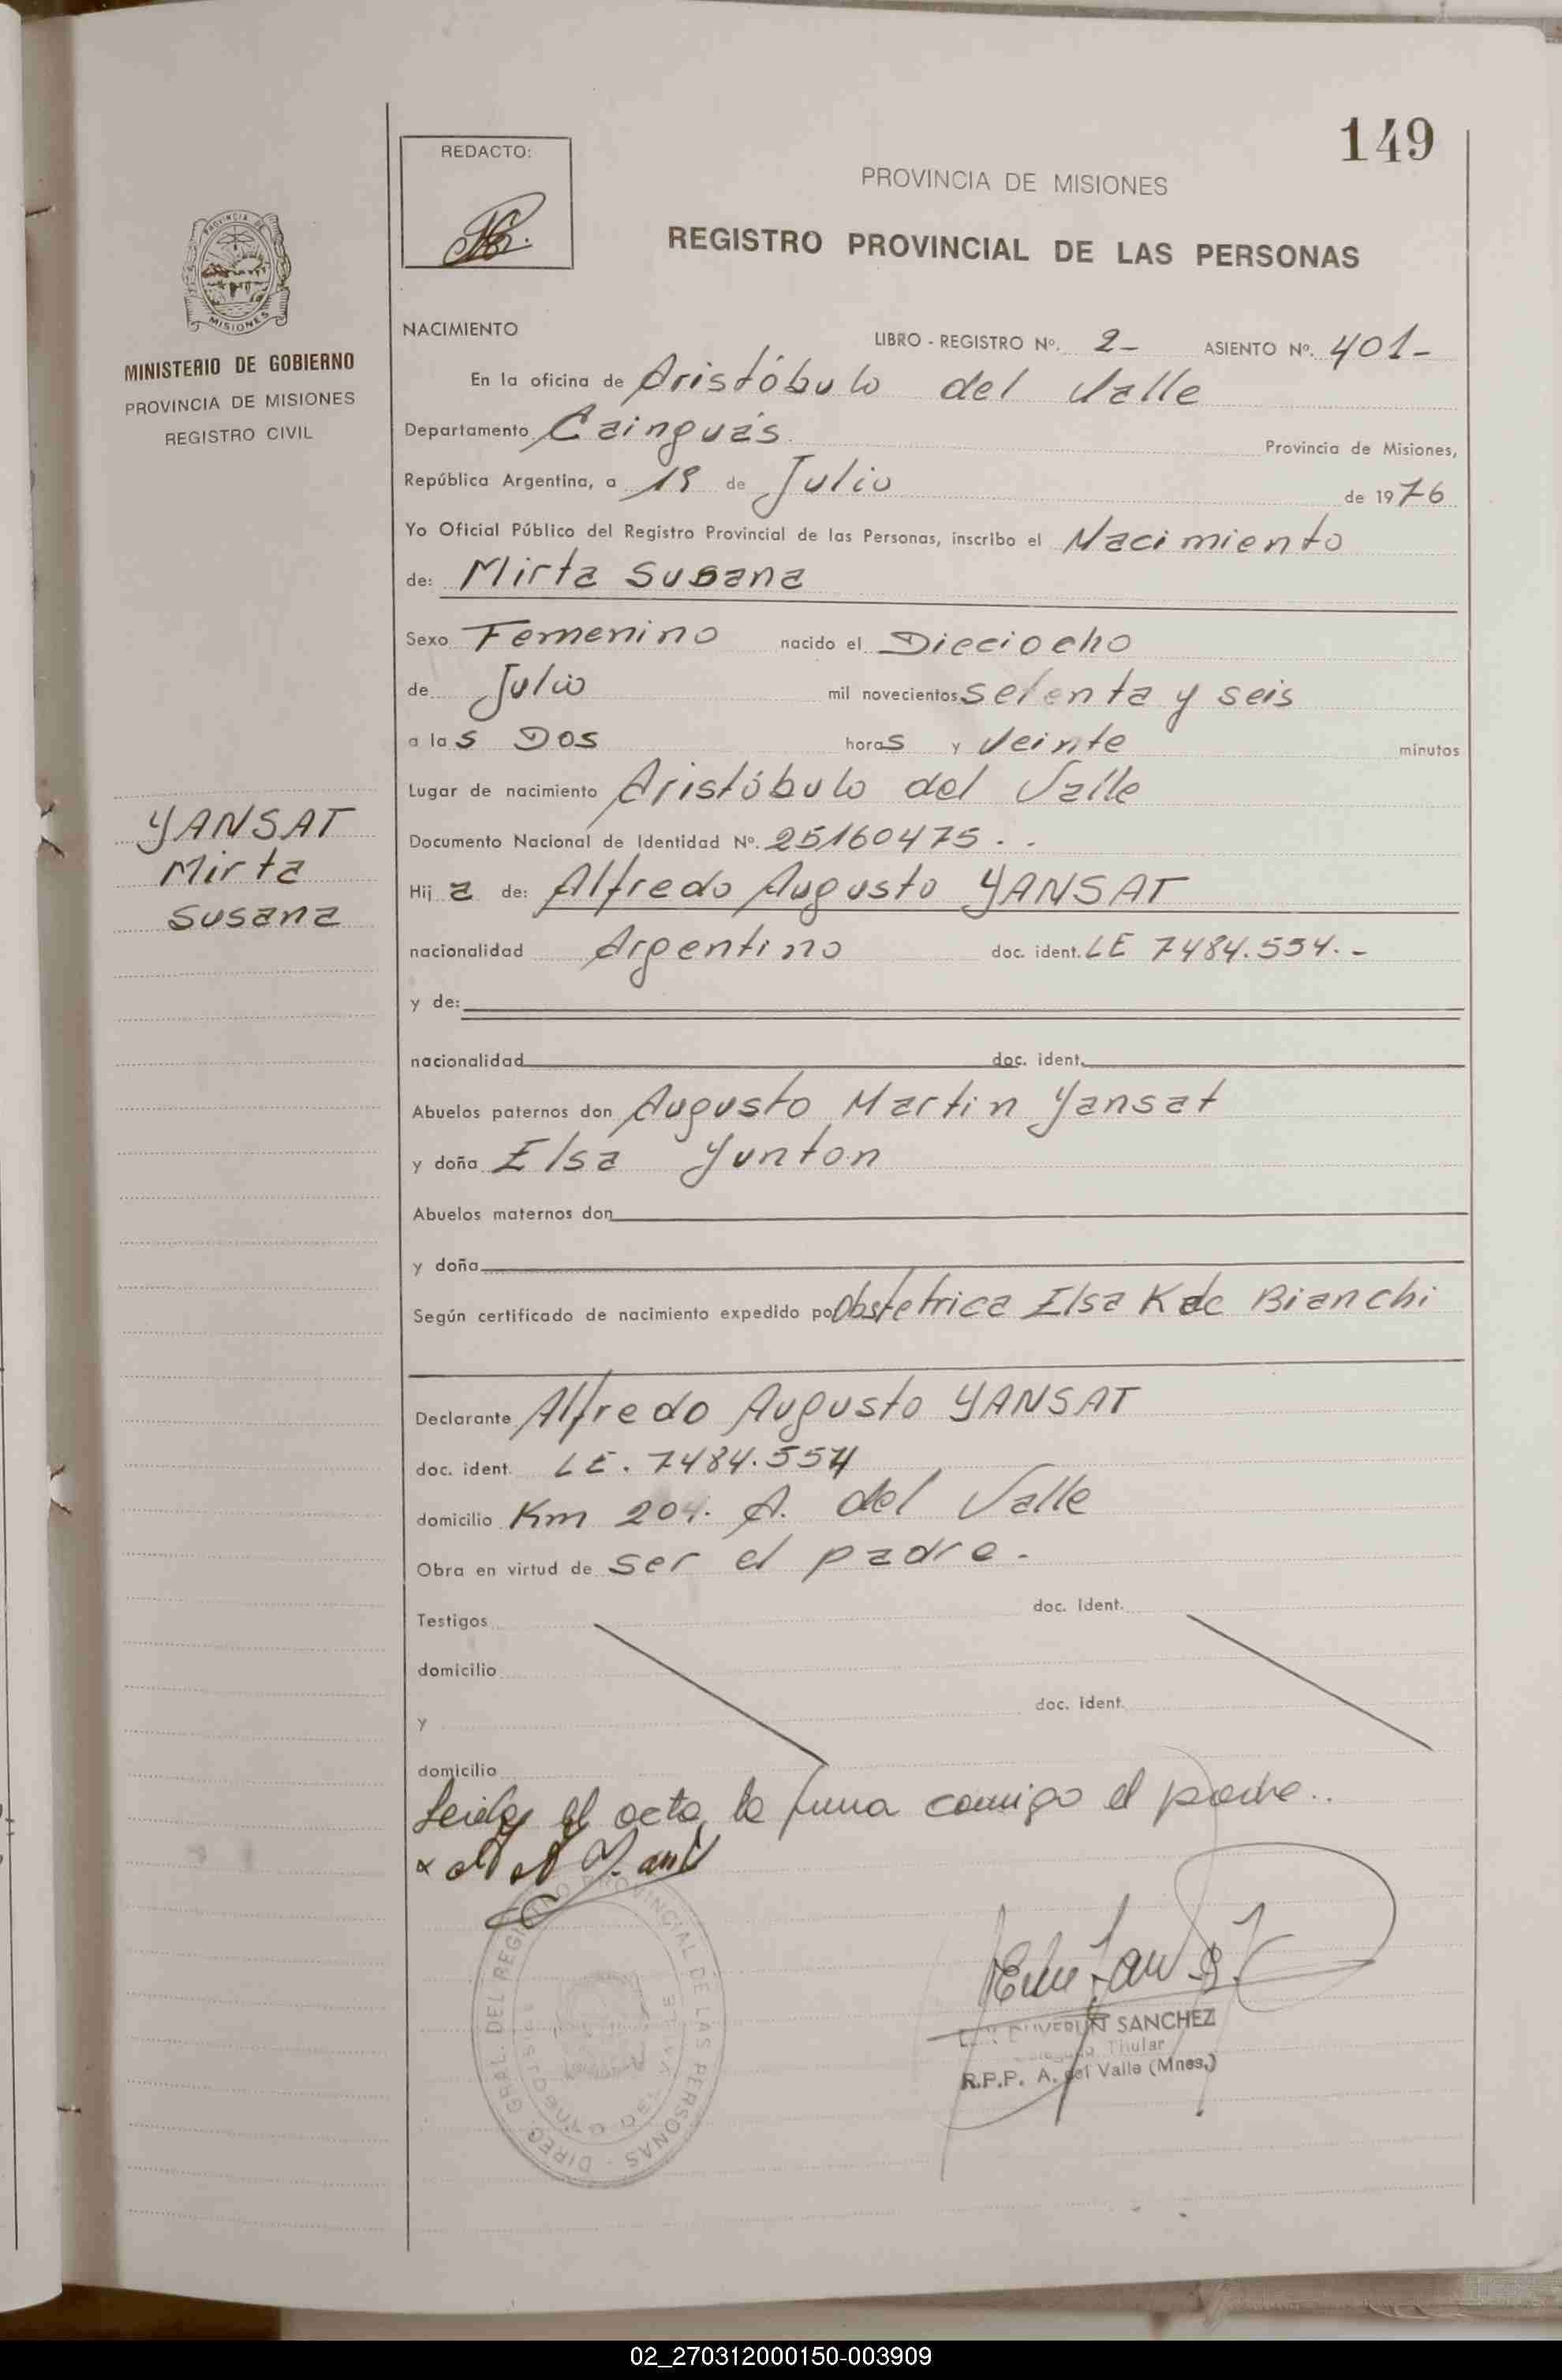 149
REDACTO:
PROVINCIA DE MISIONES
REGISTRO PROVINCIAL DE LAS PERSONAS
PROVINCIA DE
MISIONES
MINISTERIO DE GOBIERNO
PROVINCIA DE MISIONES
REGISTRO CIVIL
NACIMIENTO
LIBRO - REGISTRO Nº. 2- ASIENTO Nº. 401-
En la oficina de Aristóbulo del Valle
Departamento Cainguás Provincia de Misiones,
República Argentina, a 19 de Julio de 1976
Yo Oficial Público del Registro Provincial de las Personas, inscribo el Nacimiento
de: Mirta Susana
Sexo Femenino nacido el Dieciocho
de Julio mil novecientos setenta y seis
a las Dos horas y Veinte minutos
Lugar de nacimiento Aristóbulo del Valle
YANSAT
Mirta
Susana
Documento Nacional de Identidad Nº. 25160475. .
Hija de: Alfredo Augusto YANSAT
nacionalidad Argentino doc. ident. LE 7484.554.-
y de:
nacionalidad doc. ident.
Abuelos paternos don Augusto Martin Yansat
y doña Elsa Yunton
Abuelos maternos don
y doña
Según certificado de nacimiento expedido po Obstetrica Elsa K de Bianchi
Declarante Alfredo Augusto YANSAT
doc. ident. LE. 7484.554
domicilio Km 204. A. del Valle
Obra en virtud de ser el padre.
Testigos doc. ident.
domicilio
y doc. ident.
domicilio
Leida el acta, la firma comigo el padre..
DIREC. GRAL. DEL REGISTRO PROVINCIAL DE LAS PERSONAS
SANCHEZ
Titular
R.P.P. A. del Valle (Mnes.)
02_270312000150-003909